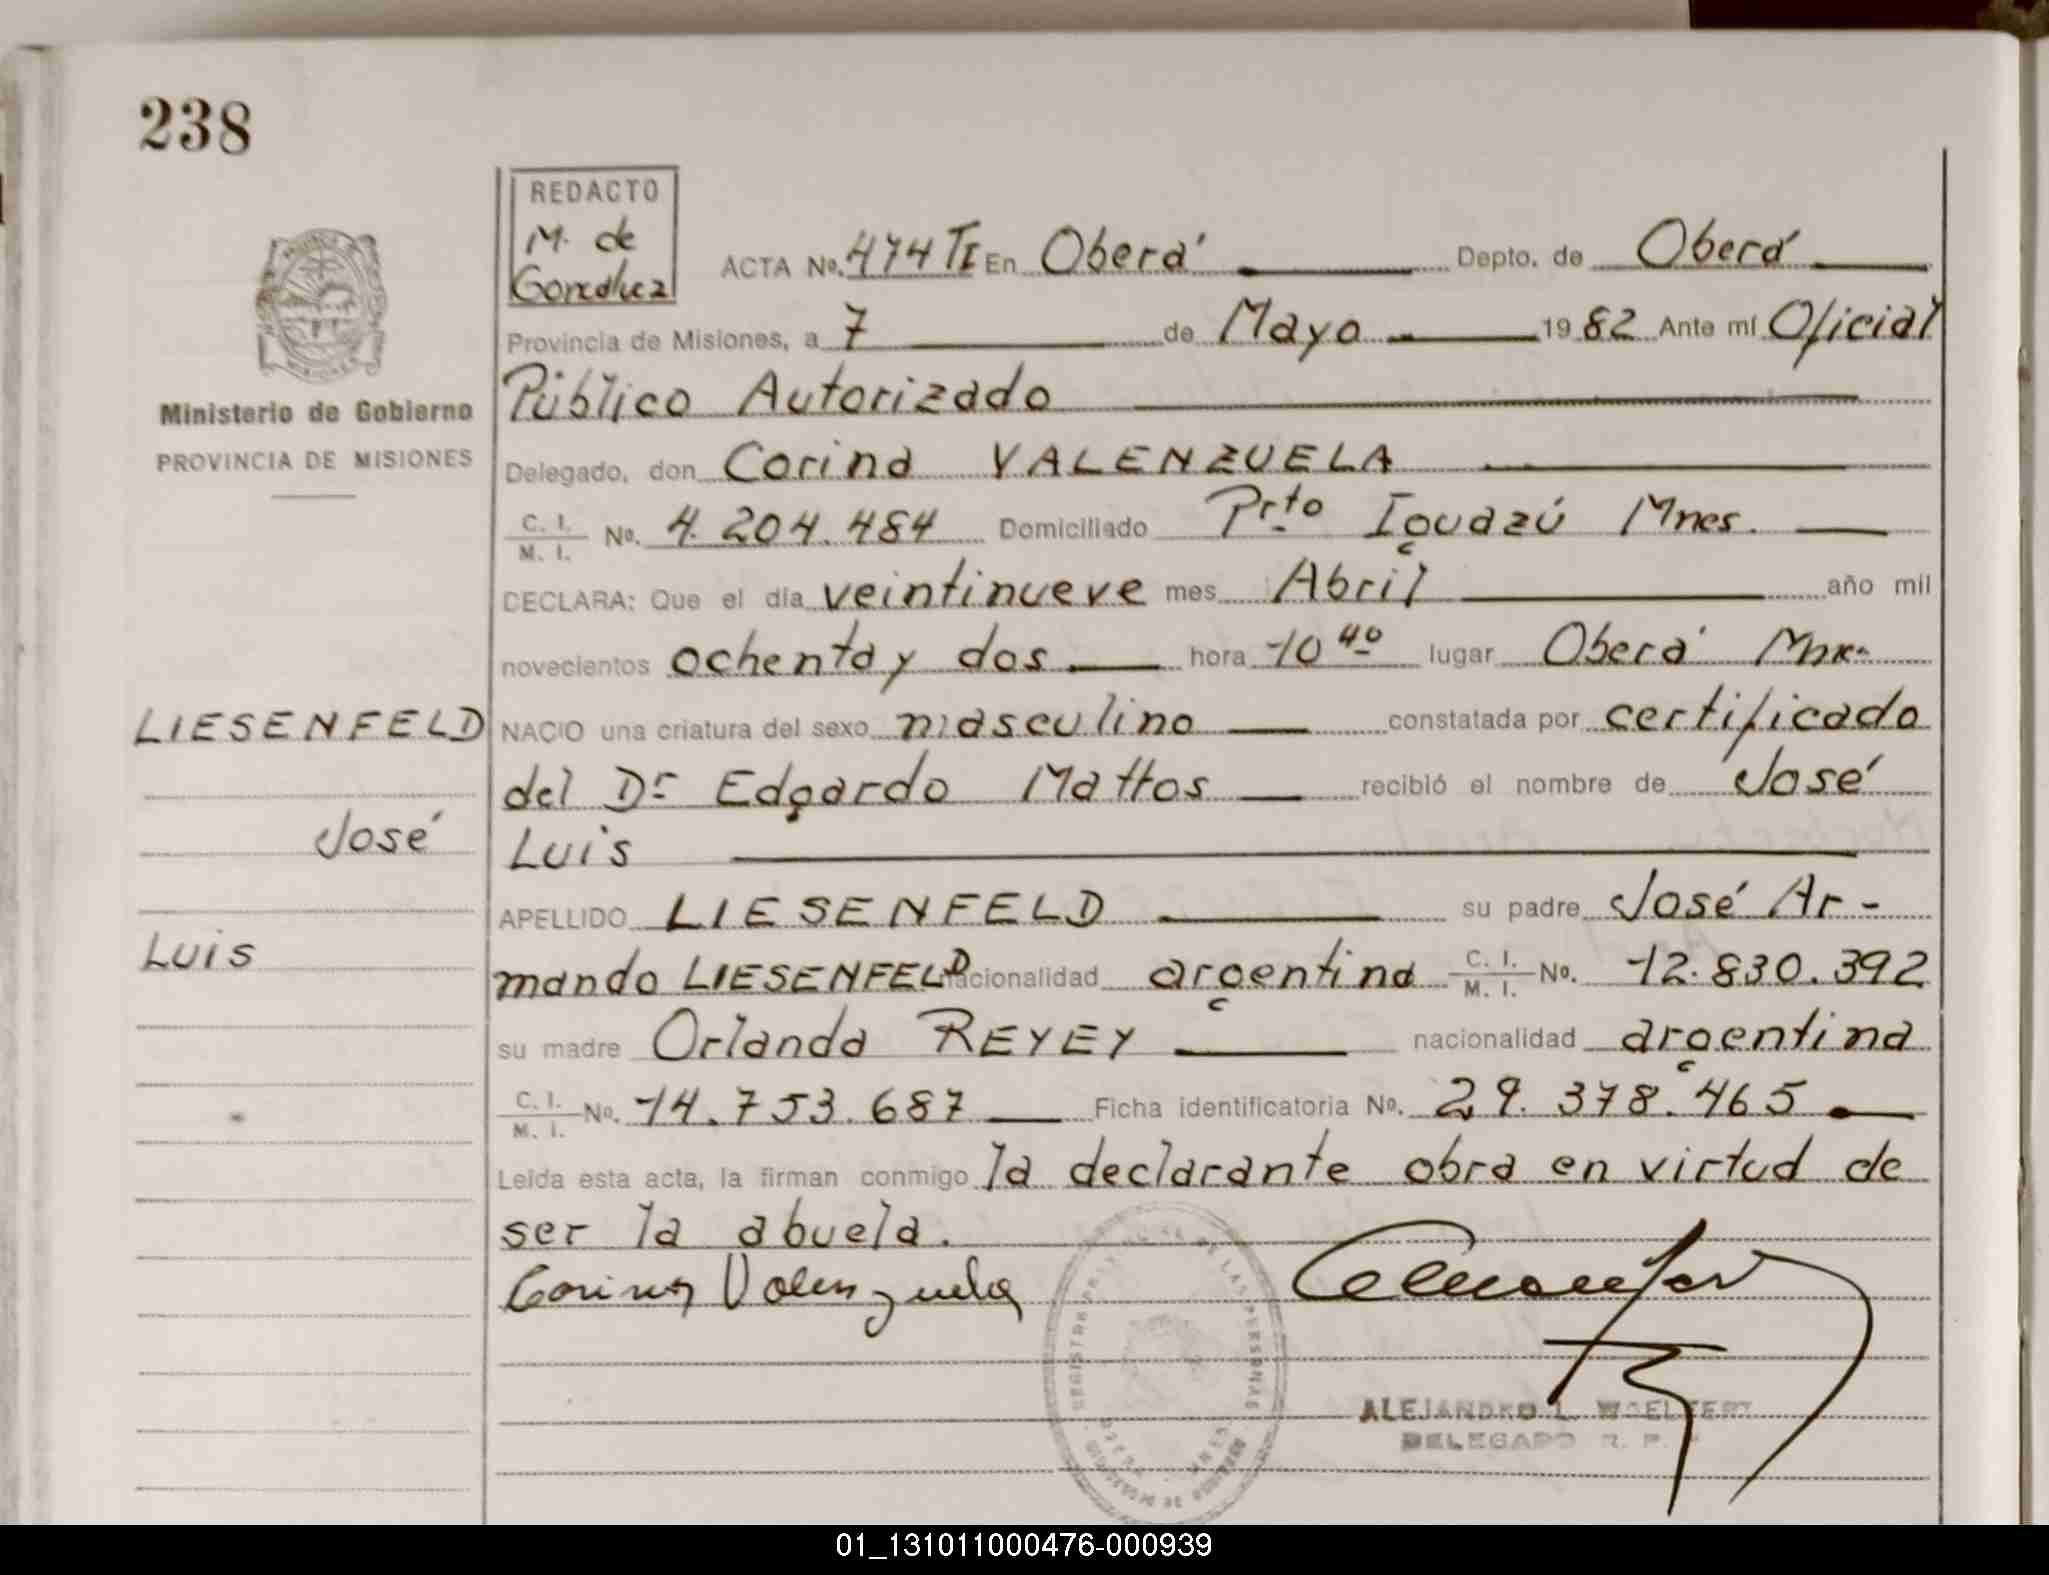 238
REDACTO
M. de
Gonzalez
ACTA No. 474 TI En Oberá Depto. de Oberá
Provincia de Misiones, a 7 de Mayo 1982 Ante mí Oficial
Público Autorizado
Ministerio de Gobierno
PROVINCIA DE MISIONES
Delegado, don Corina VALENZUELA
C. I.
M. I. No. 4.204.484 Domiciliado Prto Iguazú Mnes.
DECLARA: Que el día veintinueve mes Abril año mil
novecientos ochenta y dos hora 10 40 lugar Oberá Mnes.
LIESENFELD
NACIO una criatura del sexo masculino constatada por certificado
del Dr Edgardo Mattos recibió el nombre de José
José
Luis
APELLIDO LIESENFELD su padre José Ar-
Luis
mando LIESENFELD nacionalidad argentina C. I. M. I. No. 12.830.392
su madre Orlanda REYEY nacionalidad argentina
C. I. M. I. No. 14.753.687 Ficha identificatoria No. 29.378.465
Leída esta acta, la firman conmigo la declarante obra en virtud de
ser la abuela.
Corina Valenzuela
REGISTRO PROVINCIAL DE LAS PERSONAS
ALEJANDRO L. WOELFERT
DELEGADO R. P.
01_131011000476-000939